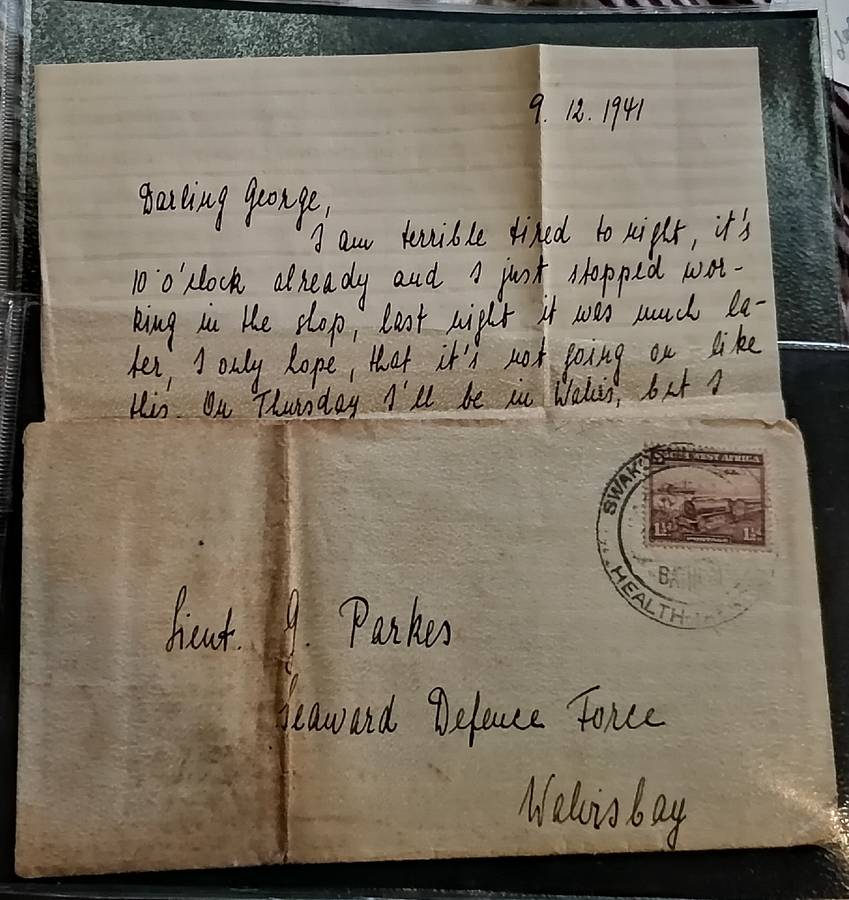 9. 12. 1941
Darling George,
I am terrible tired to night, it's
10 o'clock already and I just stopped wor-
king in the shop, last night it was much la-
ter, I only hope, that it's not going on like
this. On Thursday I'll be in Walvis, but I
SOUTH WEST AFRICA
1½ 1½
POSTAGE
HEALTH
Lieut. G. Parkes
Seaward Defence Force
Walvisbay